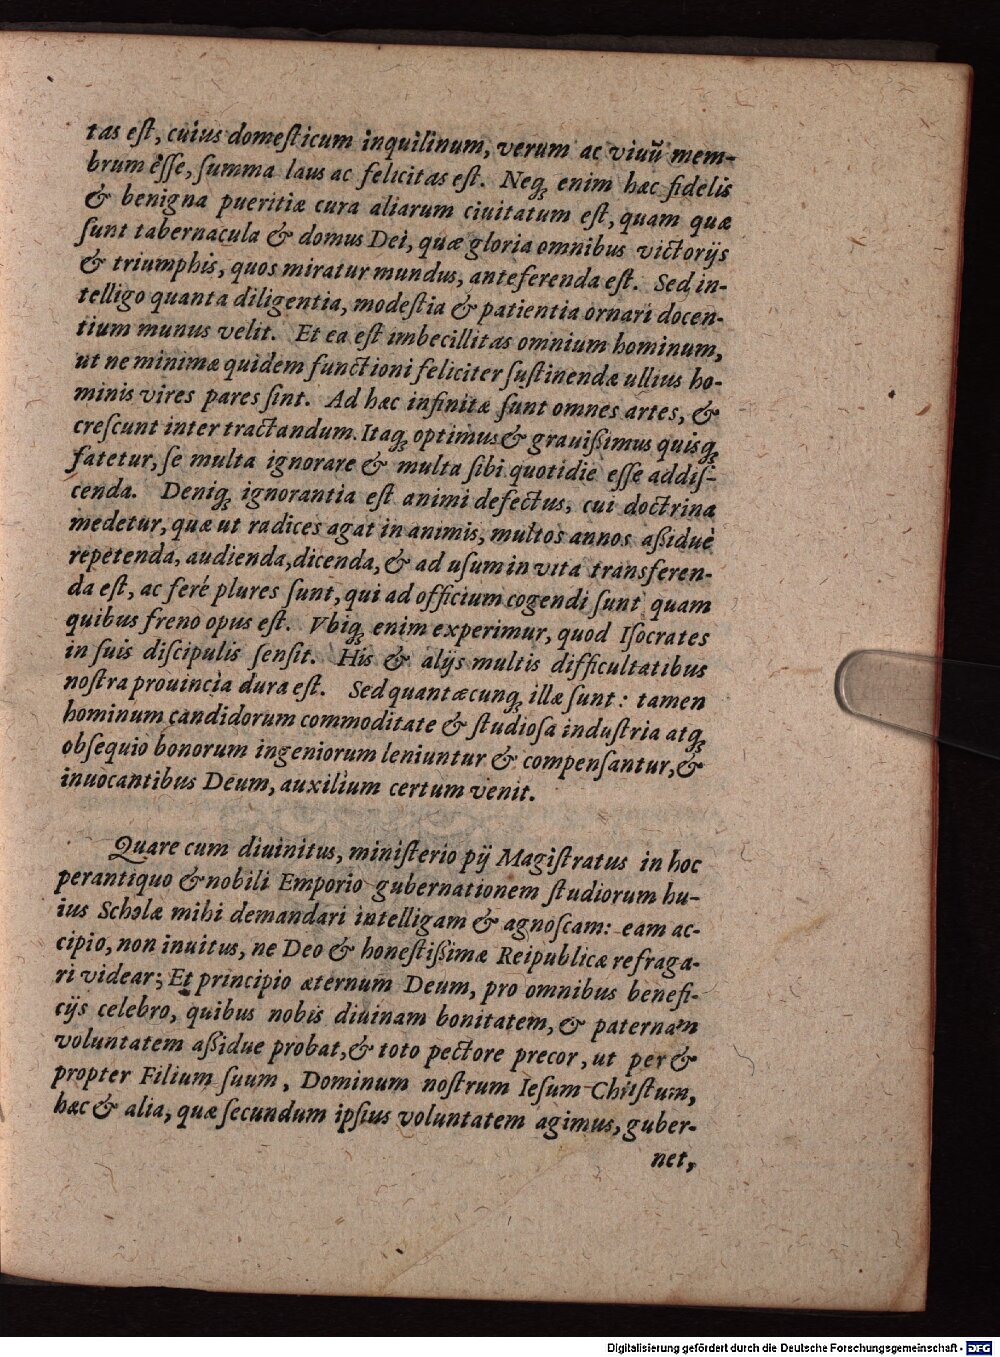 tas eſt, cuius domeſticum inquilinum, verum ac viuū mem-
brum eſſe, ſumma laus ac felicitas eſt. Neqꝫ enim hæc fidelis
& benigna pueritiæ cura aliarum ciuitatum eſt, quam quæ
ſunt tabernacula & domus Dei, quæ gloria omnibus victorijs
& triumphis, quos miratur mundus, anteferenda eſt. Sed in-
telligo quanta diligentia, modeſtia & patientia ornari docen-
tium munus velit. Et ea eſt imbecillitas omnium hominum,
ut ne minimæ quidem functioni feliciter ſuſtinendæ ullius ho-
minis vires pares ſint. Ad hæc infinitæ ſunt omnes artes, &
creſcunt inter tractandum. Itaqꝫ optimus & grauißimus quisqꝫ
fatetur, ſe multa ignorare & multa ſibi quotidie eſſe addiſ-
cenda. Deniqꝫ ignorantia eſt animi defectus, cui doctrina
medetur, quæ ut radices agat in animis, multos annos aßidue
repetenda, audienda, dicenda, & ad uſum in vita transferen-
da eſt, ac feré plures ſunt, qui ad officium cogendi ſunt quam
quibus freno opus eſt. Vbiqꝫ enim experimur, quod Iſocrates
in ſuis diſcipulis ſenſit. His & alijs multis difficultatibus
noſtra prouincia dura eſt. Sed quantæcunqꝫ illæ ſunt: tamen
hominum candidorum commoditate & ſtudioſa induſtria atqꝫ
obſequio bonorum ingeniorum leniuntur & compenſantur, &
inuocantibus Deum, auxilium certum venit.
Quare cum diuinitus, miniſterio pij Magiſtratus in hoc
perantiquo & nobili Emporio gubernationem ſtudiorum hu-
ius Scholæ mihi demandari intelligam & agnoſcam: eam ac-
cipio, non inuitus, ne Deo & honeſtißimæ Reipublicæ refraga-
ri videar; Et principio æternum Deum, pro omnibus benefi-
cijs celebro, quibus nobis diuinam bonitatem, & paternam
voluntatem aßidue probat, & toto pectore precor, ut per &
propter Filium ſuum, Dominum noſtrum Ieſum Chriſtum,
hæc & alia, quæ ſecundum ipſius voluntatem agimus, guber-
net,
Digitalisierung gefördert durch die Deutsche Forschungsgemeinschaft - DFG